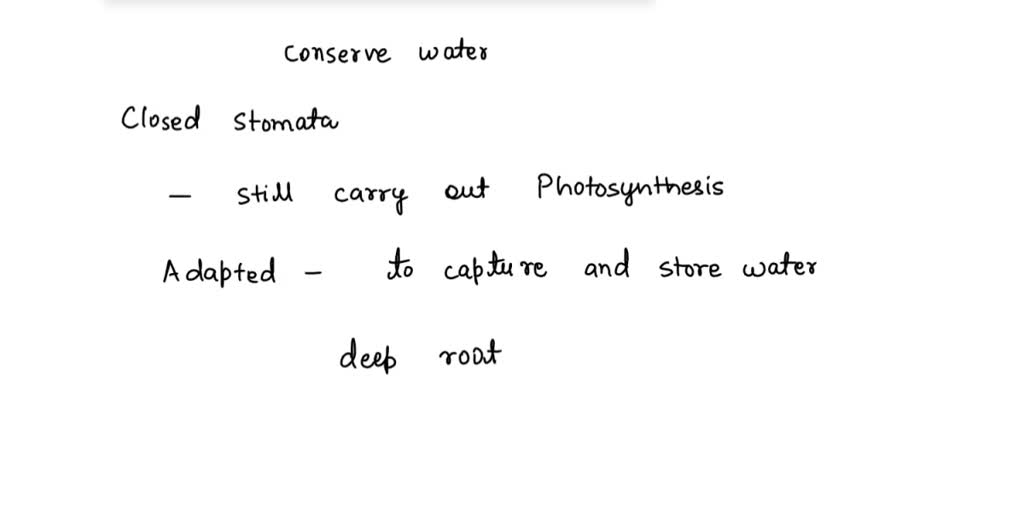 Conserve water
Closed stomata
- still carry out Photosynthesis
Adapted - to capture and store water
deep root